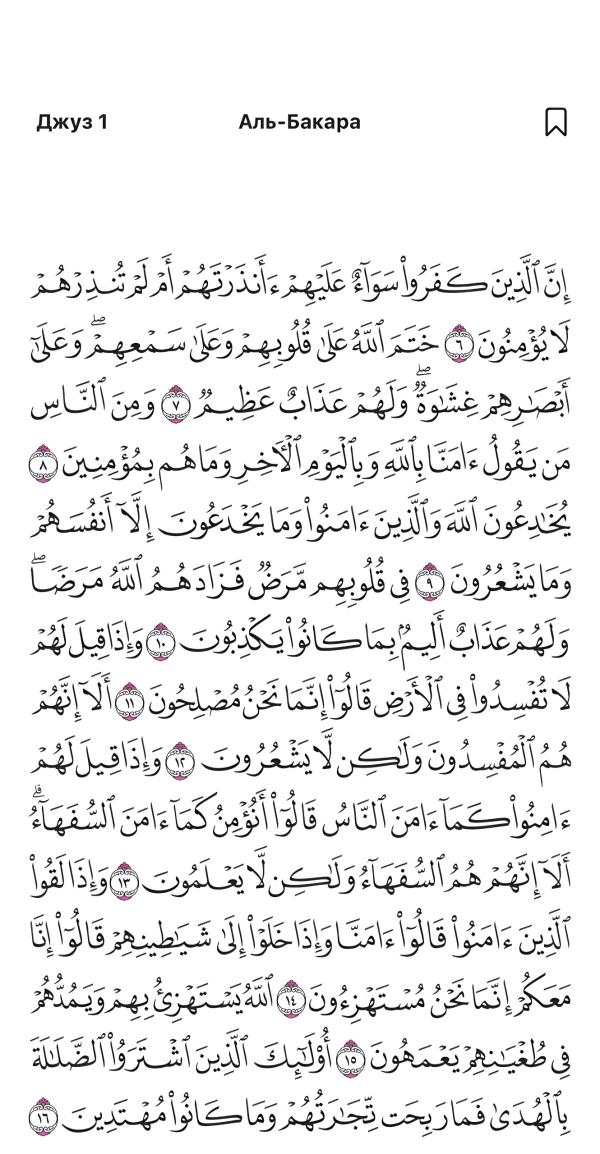 Джуз 1
Аль-Бакара
إِنَّ ٱلَّذِينَ كَفَرُوا۟ سَوَآءٌ عَلَيْهِمْ ءَأَنذَرْتَهُمْ أَمْ لَمْ تُنذِرْهُمْ
لَا يُؤْمِنُونَ ٦ خَتَمَ ٱللَّهُ عَلَىٰ قُلُوبِهِمْ وَعَلَىٰ سَمْعِهِمْ ۖ وَعَلَىٰٓ
أَبْصَـٰرِهِمْ غِشَـٰوَةٌ ۖ وَلَهُمْ عَذَابٌ عَظِيمٌ ٧ وَمِنَ ٱلنَّاسِ
مَن يَقُولُ ءَامَنَّا بِٱللَّهِ وَبِٱلْيَوْمِ ٱلْـَٔاخِرِ وَمَا هُم بِمُؤْمِنِينَ ٨
يُخَـٰدِعُونَ ٱللَّهَ وَٱلَّذِينَ ءَامَنُوا۟ وَمَا يَخْدَعُونَ إِلَّآ أَنفُسَهُمْ
وَمَا يَشْعُرُونَ ٩ فِى قُلُوبِهِم مَّرَضٌ فَزَادَهُمُ ٱللَّهُ مَرَضًا ۖ
وَلَهُمْ عَذَابٌ أَلِيمٌۢ بِمَا كَانُوا۟ يَكْذِبُونَ ١٠ وَإِذَا قِيلَ لَهُمْ
لَا تُفْسِدُوا۟ فِى ٱلْأَرْضِ قَالُوٓا۟ إِنَّمَا نَحْنُ مُصْلِحُونَ ١١ أَلَآ إِنَّهُمْ
هُمُ ٱلْمُفْسِدُونَ وَلَـٰكِن لَّا يَشْعُرُونَ ١٢ وَإِذَا قِيلَ لَهُمْ
ءَامِنُوا۟ كَمَآ ءَامَنَ ٱلنَّاسُ قَالُوٓا۟ أَنُؤْمِنُ كَمَآ ءَامَنَ ٱلسُّفَهَآءُ ۗ
أَلَآ إِنَّهُمْ هُمُ ٱلسُّفَهَآءُ وَلَـٰكِن لَّا يَعْلَمُونَ ١٣ وَإِذَا لَقُوا۟
ٱلَّذِينَ ءَامَنُوا۟ قَالُوٓا۟ ءَامَنَّا وَإِذَا خَلَوْا۟ إِلَىٰ شَيَـٰطِينِهِمْ قَالُوٓا۟ إِنَّا
مَعَكُمْ إِنَّمَا نَحْنُ مُسْتَهْزِءُونَ ١٤ ٱللَّهُ يَسْتَهْزِئُ بِهِمْ وَيَمُدُّهُمْ
فِى طُغْيَـٰنِهِمْ يَعْمَهُونَ ١٥ أُو۟لَـٰٓئِكَ ٱلَّذِينَ ٱشْتَرَوُا۟ ٱلضَّلَـٰلَةَ
بِٱلْهُدَىٰ فَمَا رَبِحَت تِّجَـٰرَتُهُمْ وَمَا كَانُوا۟ مُهْتَدِينَ ١٦